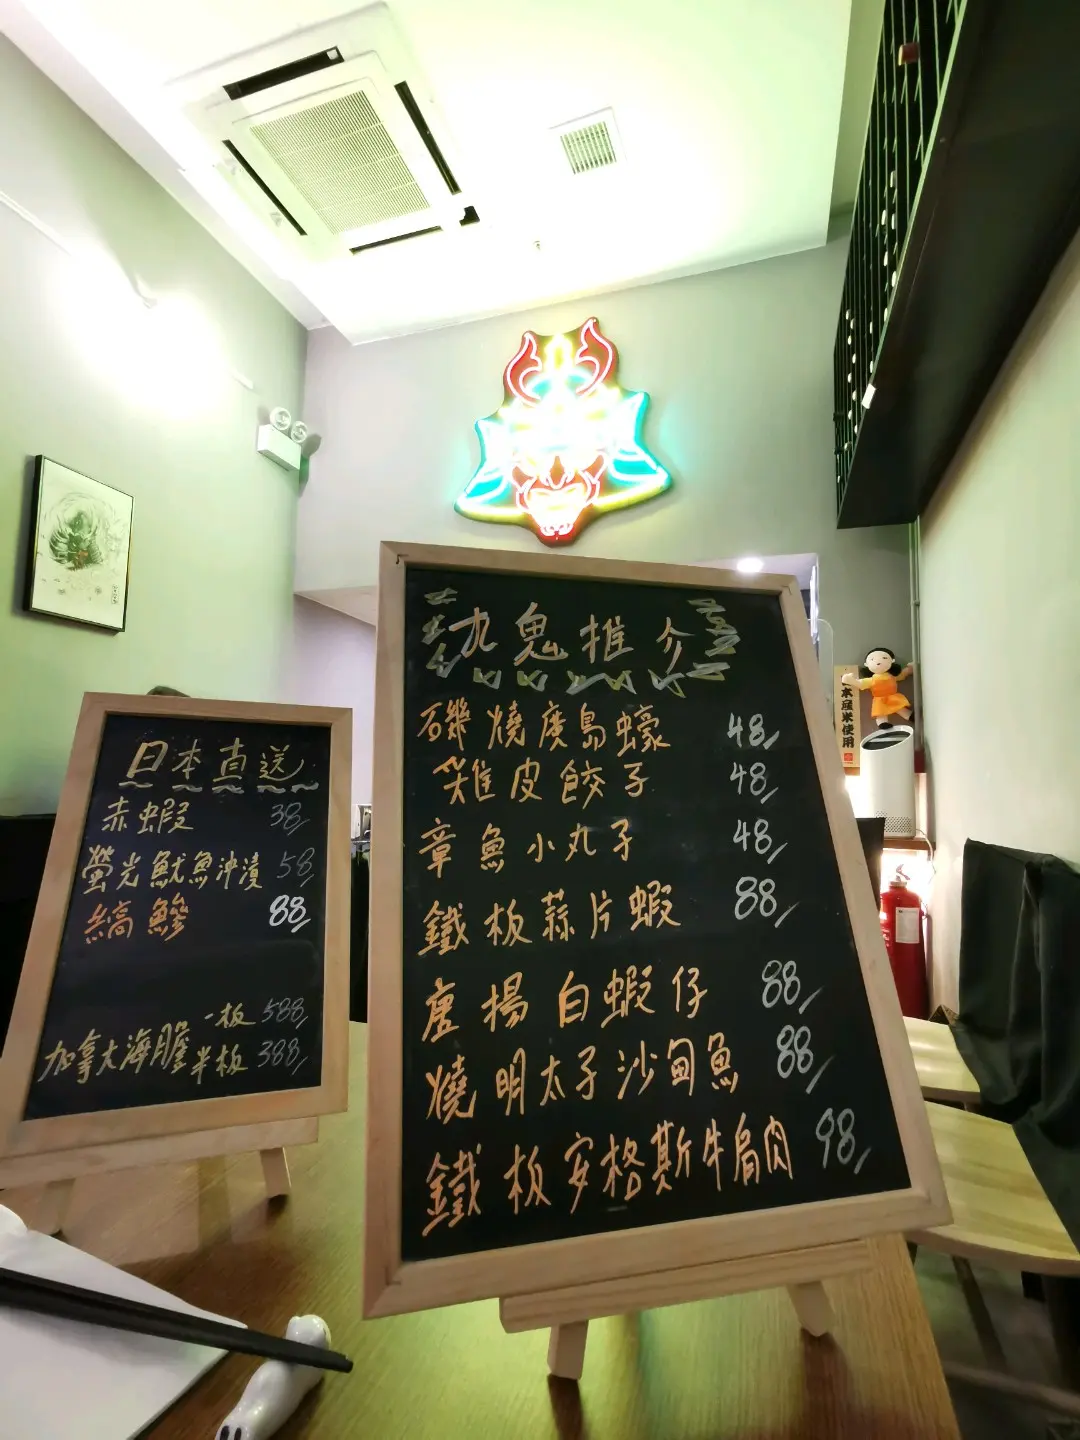 日本直送
赤蝦 38/
螢光魷魚沖漬 58/
縞鯵 88/
一板 588/
加拿大海膽 半板 388/
九鬼推介
磯燒廣島蠔 48/
雞皮餃子 48/
章魚小丸子 48/
鐵板蒜片蝦 88/
唐揚白蝦仔 88/
燒明太子沙甸魚 88/
鐵板安格斯牛肩肉 98/
本産米使用